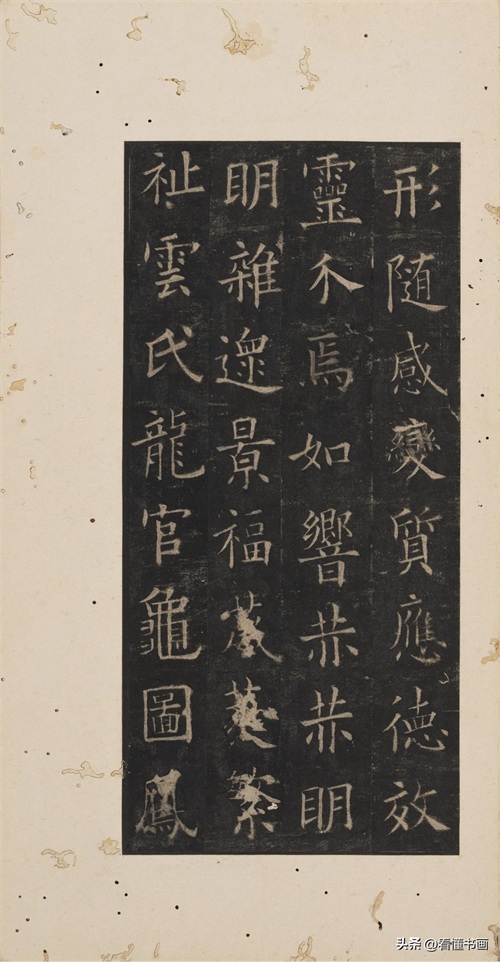 形隨感變質應德效
靈介焉如響赫赫明
明雜遝景福葳蕤繁
祉雲氏龍官龜圖鳳
头条 @看懂书画